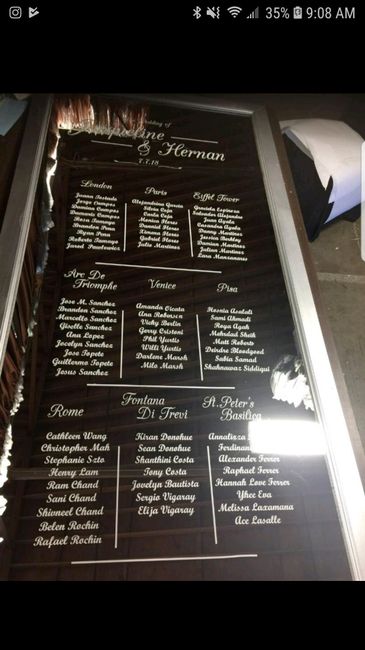 35% 9:08 AM
Wedding of
Jacqueline
& Hernan
7.7.18
London
Paris
Eiffel Tower
Jorge Campos
Damian Campos
Brandon Pena
Ryan Pena
Roberto Tamayo
Jared Pawlowicz
Alejandrina Garcia
Silvia Ceja
Carla Ceja
Marisa Flores
Daniel Flores
Ximena Flores
Gabriel Flores
Julie Martinez
Graciela Espinoza
Salvador Alejandre
Juan Ayala
Cassandra Ayala
Danny Martinez
Jessica Barkley
Damian Martinez
Julian Martinez
Lara Manzanares
Arc De
Triomphe
Venice
Pisa
Jose M. Sanchez
Brandon Sanchez
Marcello Sanchez
Giselle Sanchez
Ana Lopez
Jocelyn Sanchez
Jose Topete
Guillermo Topete
Jesus Sanchez
Amanda Cicata
Ana Robinson
Vicky Berlin
Gerry Cristoni
Phil Yurtis
Willi Yurtis
Darlene Marsh
Milo Marsh
Hosnia Asalati
Sami Ahmadi
Roya Agah
Mehrdad Sheik
Matt Roberts
Deirdre Bloodgood
Sabia Samad
Shahnawaz Siddiqui
Rome
Fontana
Di Trevi
St. Peter's
Basilica
Cathleen Wang
Christopher Mah
Stephanie Szto
Henry Lam
Ram Chand
Sani Chand
Shivneel Chand
Belen Rochin
Rafael Rochin
Kiran Donohue
Sean Donohue
Shanthini Costa
Tony Costa
Jovelyn Bautista
Sergio Vigaray
Elija Vigaray
Annaliza
Ferdinand
Alexander Ferrer
Raphael Ferrer
Hannah Love Ferrer
Yhee Eva
Melissa Laxamana
Ace Lasalle